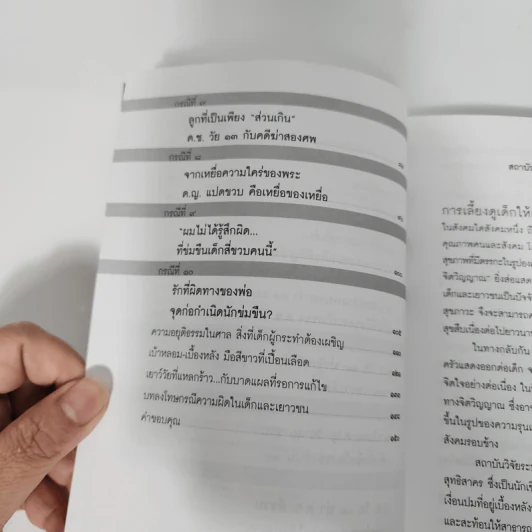 กรณีที่ ๗
ลูกที่เป็นเพียง "ส่วนเกิน"
ด.ช. วัย ๑๓ กับคดีฆ่าสองศพ
กรณีที่ ๘
จากเหยื่อความใคร่ของพระ
ด.ญ. แปดขวบ คือเหยื่อของเหยื่อ
กรณีที่ ๙
"ผมไม่ได้รู้สึกผิด...
ที่ข่มขืนเด็กสี่ขวบคนนี้"
กรณีที่ ๑๐
รักที่ผิดทางของพ่อ
จุดก่อกำเนิดนักข่มขืน?
ความอยุติธรรมในศาล สิ่งที่เด็กผู้กระทำต้องเผชิญ
เบ้าหลอม-เบื้องหลัง มือสีขาวที่เปื้อนเลือด
เยาว์วัยที่แหลกร้าว...กับบาดแผลที่รอการแก้ไข
บทลงโทษกรณีความผิดในเด็กและเยาวชน
คำขอบคุณ
สถาบัน
การเลี้ยงดูเด็กให้
ในสังคมใดสังคมหนึ่ง
คุณภาพคนและสังคม
สุขภาพที่มีตรรกะในรูปของ
จิตวิญญาณ" ยิ่งต่อ
เด็กและเยาวชนเป็นปัจจัย
สุขภาวะ จึงจะสามารถ
สุขสืบเนื่องต่อไปยาวนาน
ในทางกลับกัน
ครัวแสดงออกต่อเด็ก
จิตใจอย่างต่อเนื่อง
ทางจิตวิญญาณ ซึ่งอาจ
ขึ้นในรูปของความรุนแรง
สังคมรอบข้าง
สถาบันวิจัยระบบ
สุทธิสาคร ซึ่งเป็นนักเขียน
เงื่อนปมที่อยู่เบื้องหลัง
และสะท้อนให้สาธารณ